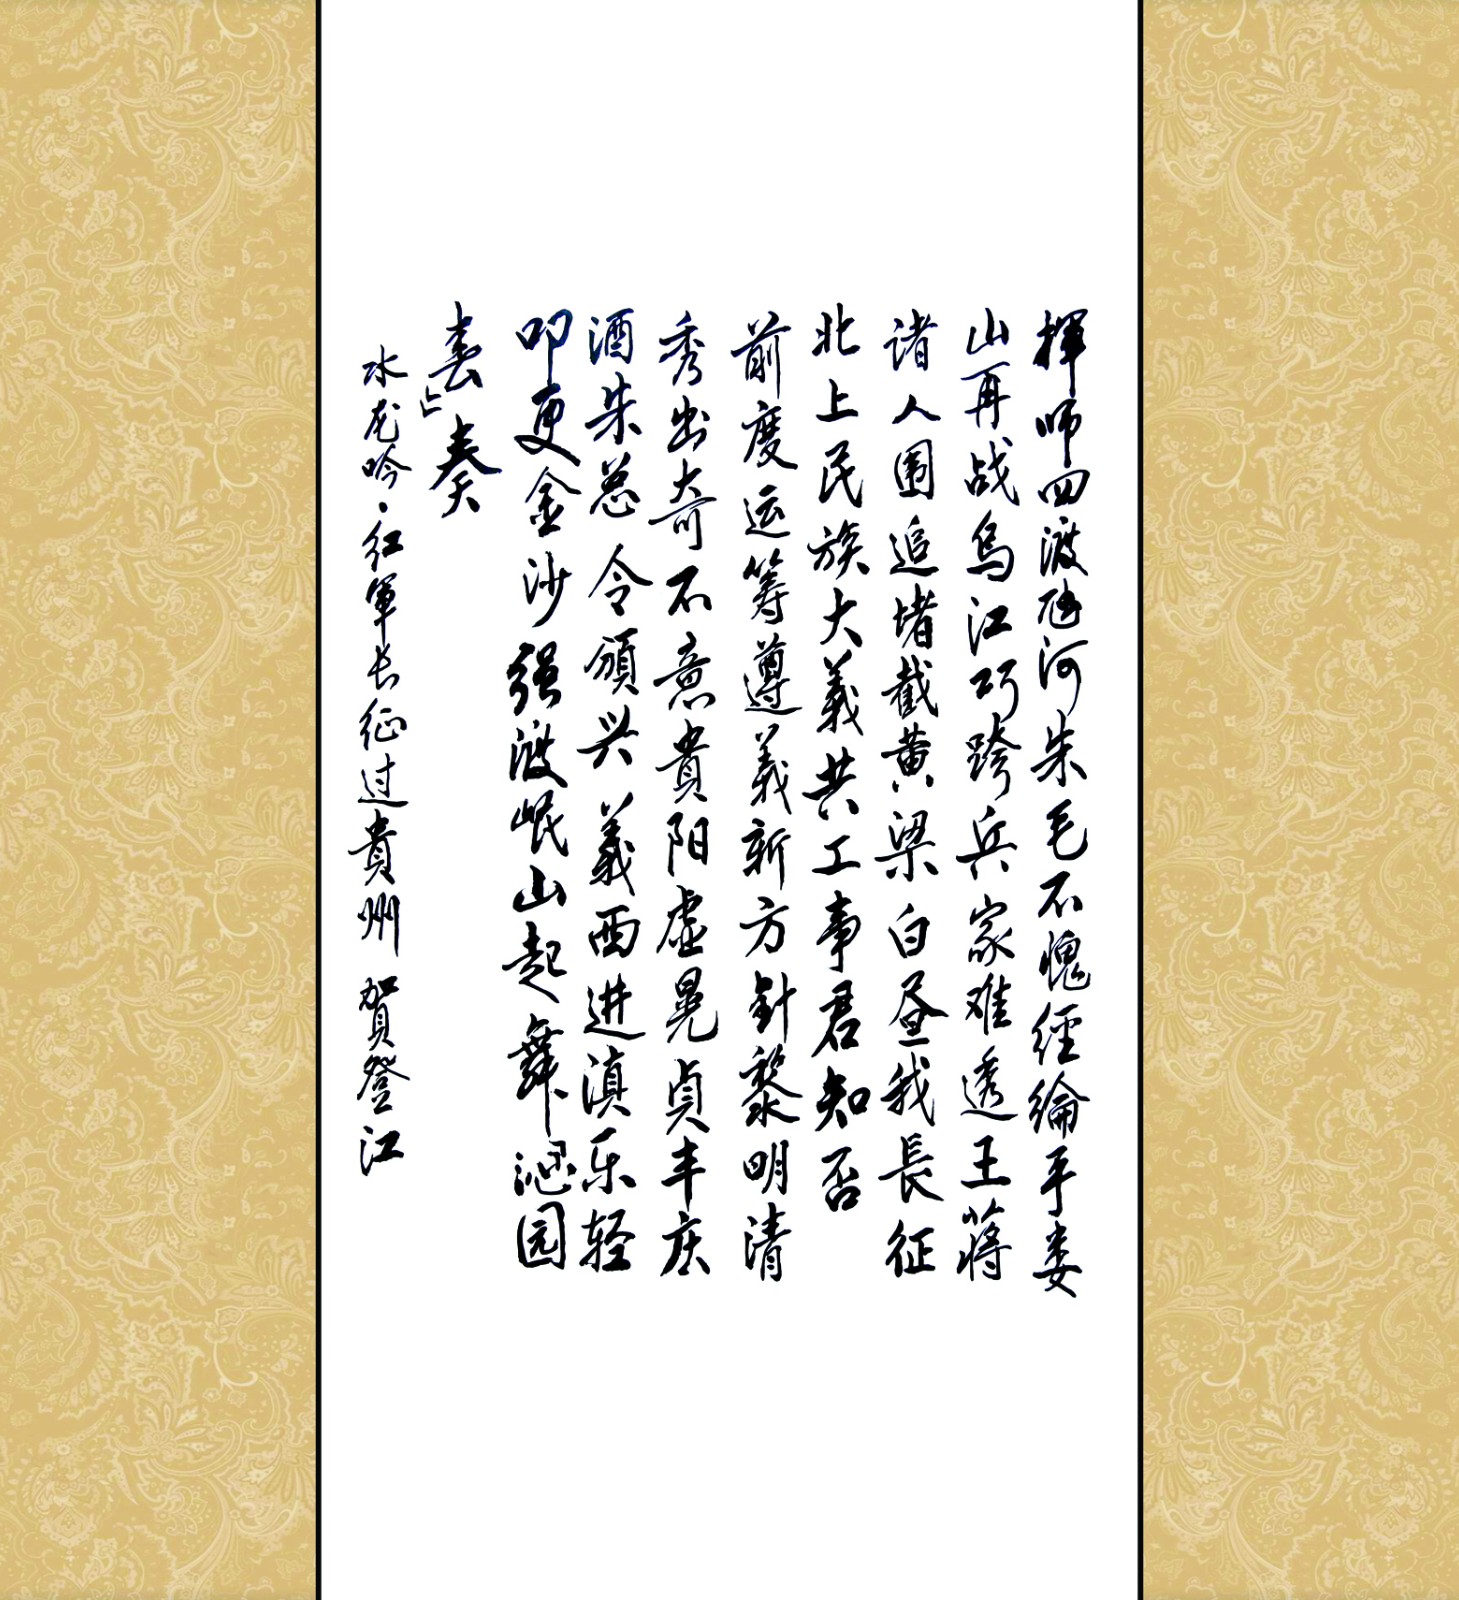 揮师四渡池河朱毛不愧經綸手娄
山再战乌江巧跨兵家难透王蒋
诸人围追堵截黄梁白昼我長征
北上民族大義共工事君知否
前度运筹遵義新方針黎明清
秀出奇不意貴阳虚晃貞丰庆
酒朱总令頒兴義西进滇乐轻
叩更金沙强渡岷山起舞沁园
春」奏
水龙吟·红軍长征过貴州 賀登江